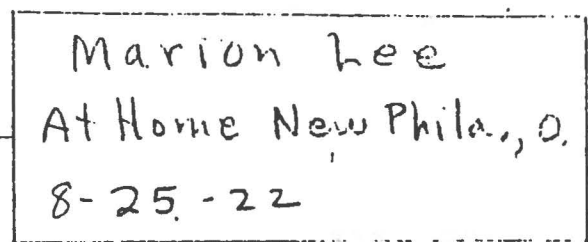 Marion Lee
At Home New Phila., O.
8-25-22